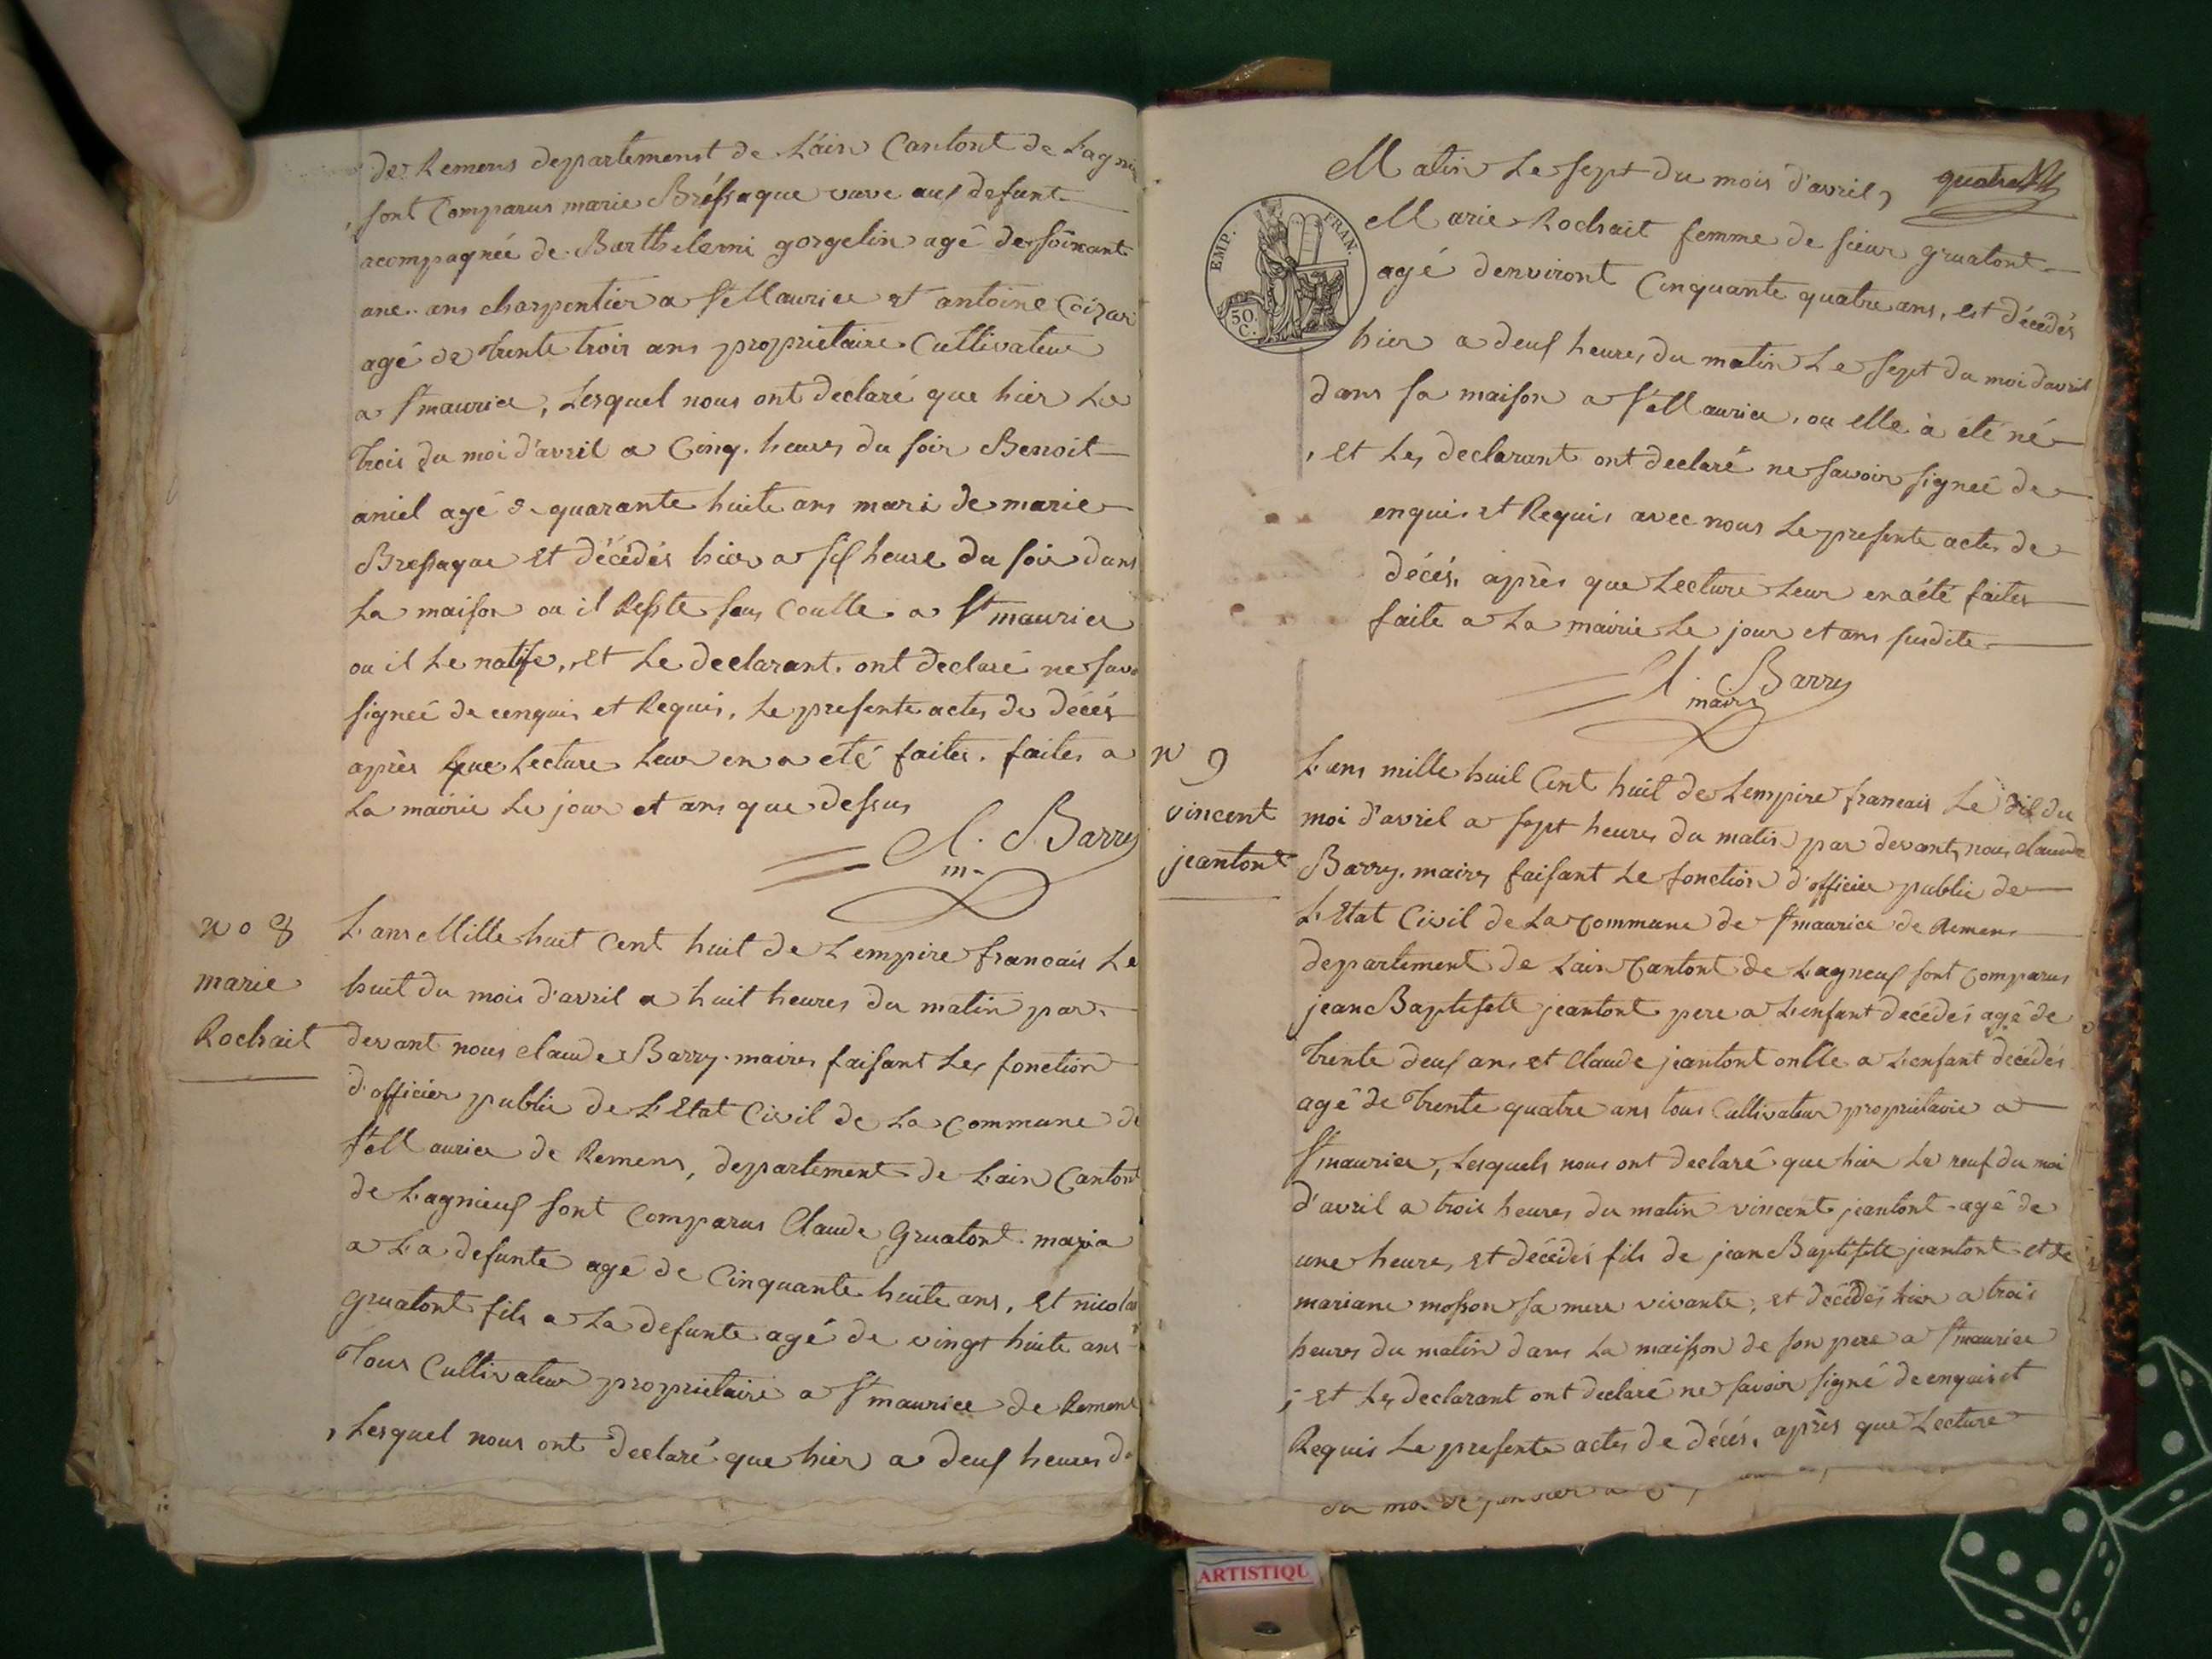 de Remens departement de Láin Cantont de Lagni
sont Comparus marie Bréssaque vave aus defunt
acompagnée de Barthelemi gorgelin agé de soixant
une ans charpentier a St Maurice et antoine
agé de trente trois ans proprietaire Cultivateur
a St maurice, Lesquel nous ont declaré que hier Le
trois du moi d'avril a Cinq heures du soir Benoit
aniel agé de quarante huite ans mari de marie
Bressaque et décédés hier a six heure du soir dans
La maison ou il Reste sous Coulte a St maurice
ou il Le natife, et Le declarant ont declaré ne sav
signeé de cenquis et Requis, Le presente actes de décés
après que Lecture Leur en a eté faites. faites a
La mairie Le jour et ans que dessus
C. Barry
m.
no 8
marie
Rochait
L'ans Mille huit Cent huit de L'empire francais Le
huit du mois d'avril a huit heures du matin par
devant nous claude Barry maires faisant Les fonction
d'officier public de L'Etat Civil de La Commune de
St Maurice de Remens, departement de Lain Cantont
de Lagnieux sont Comparus Claude Gruatont maria
a La defunte agé de Cinquante huite ans, et nicolas
gruatont fils a La defunte agé de vingt huite ans
Tous Cultivateur proprietaire a St maurice de Remens
, Lesquel nous ont declaré que hier a deux heures d
quatre
Matin Le sept du mois d'avril,
EMP. FRAN.
50 C.
Marie Rochait femme de sieur gruatont
agé denviront Cinquante quatre ans, est décédés
hier a deux heures du matin Le sept du moi d'avril
dans sa maison a St Maurice, ou elle à été né
, et Les declarant ont declaré ne savoir signeé de
enquis et Requis avec nous Le presente actes de
décés, après que Lecture Leur en a été faites
faite a La mairie Le jour et ans susdite
C. Barry
maire
n 9
vincent
jeantont
L'ans mille huit Cent huit de Lempire francais Le dix du
moi d'avril a sept heures du matin par devant, nous claude
Barry. maires faisant Le fonction d'officier public de
L'Etat Civil de La Commune de St maurice de Remens
departement de Lain Cantont de Lagneux sont Comparus
jean Baptistte jeantont pere a L'enfant décédés agé de
trente deux ans et Claude jeantont onlle a L'enfant décédés
agé de trente quatre ans tous Cultivateur proprietaire a
St maurice, Lesquels nous ont declaré que hier Le neuf du moi
d'avril a trois heures du matin vincent jeantont agé de
une heure, et décédés fils de jean Baptistte jeantont et de
mariane mosson sa mere vivante, et décédés hier a trois
heures du matin dans La maison de son pere a St maurice
; et Les declarant ont declaré ne savoir signé de enquis et
Requis Le presente actes de décés, après que Lecture
ARTISTIQU